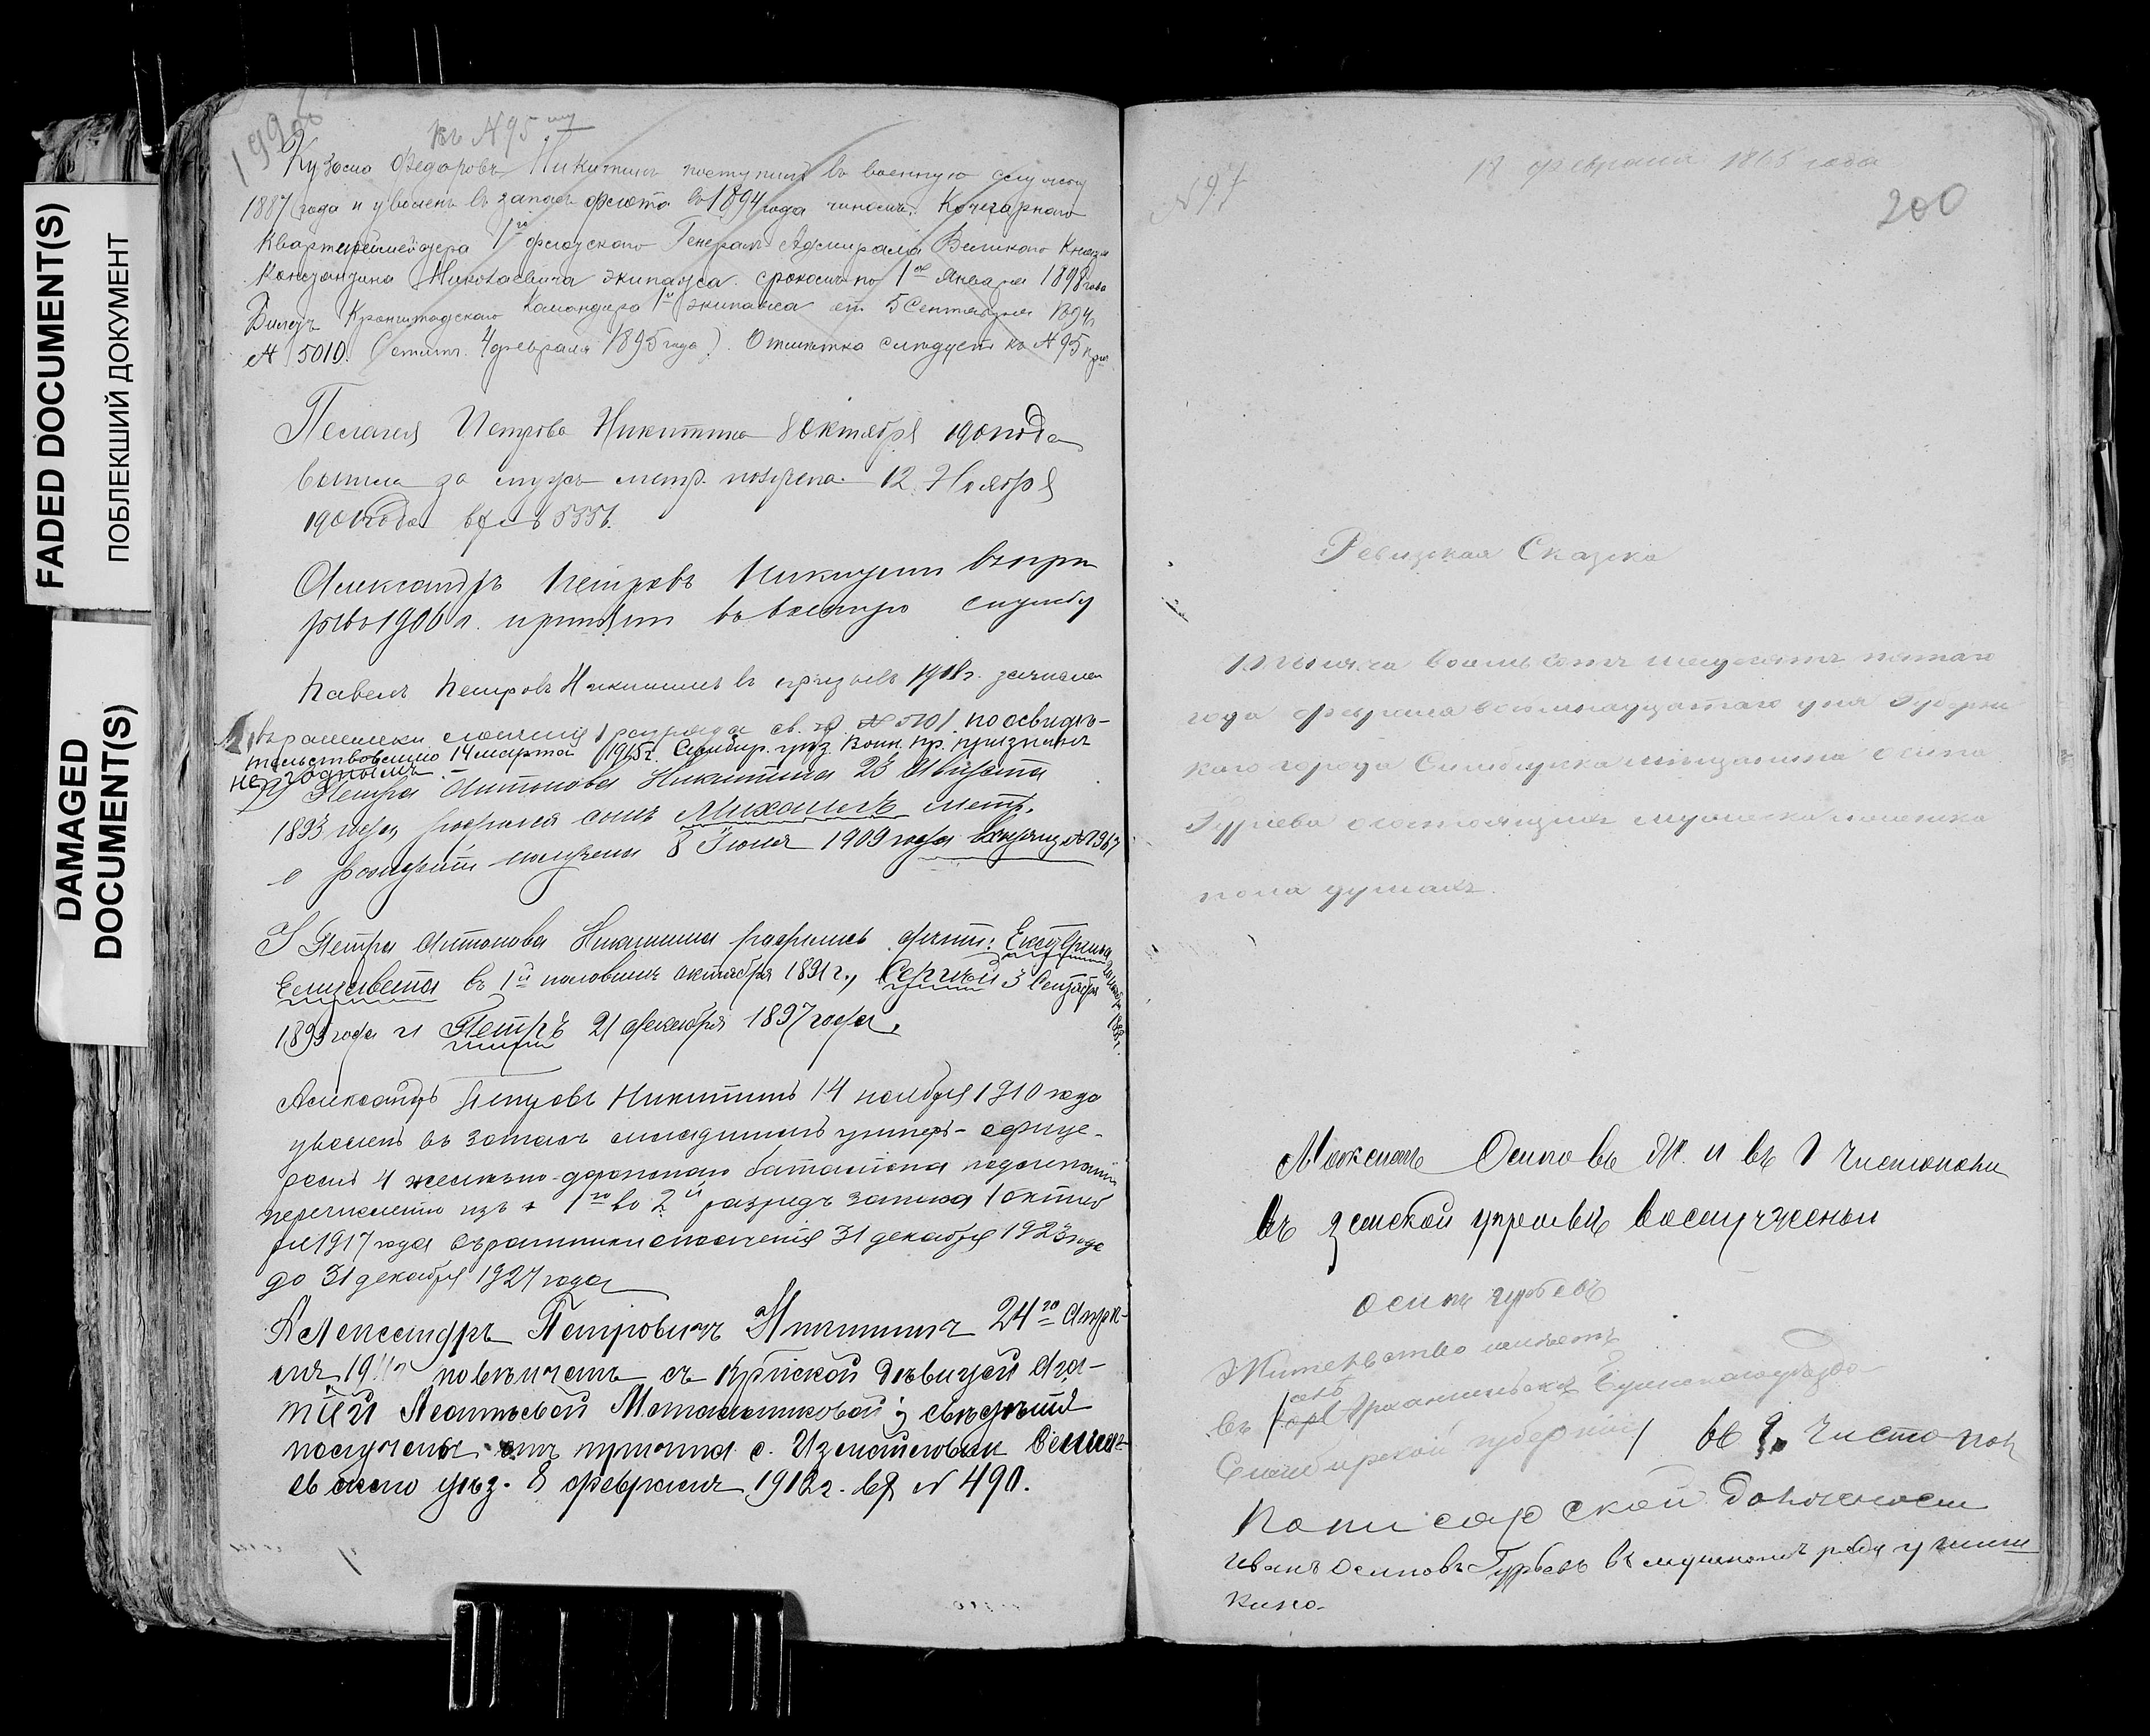 FADED DOCUMENT(S)
ПОБЛЕКШИЙ ДОКУМЕНТ
DAMAGED
DOCUMENT(S)
199об
къ № 95му
Кузьма Федоровъ Никитинъ поступилъ въ военную службу
1887 года и уволенъ въ запасъ флота въ 1894 года чиномъ: Кочегарного
Квартирмейстера 1го флотского Генералъ Адмирала Великого Князя
Константина Николаевича экипажа срокомъ по 1ое Января 1898 года
Билетъ Кронштадского Командира 1го экипажа от 5 Сентября 1894
№ 5010. 4 февраля 1895 года). Отметка следует ко № 95
Пелагея Петрова Никитина 8 Октября 1901 года
вышла за мужъ метр. 12 Ноября
1901 года вх. 5556.
Александръ Петровъ Никитин въ
1906 г. принят въ военную службу
Павелъ Петровъ Никитинъ въ призывъ 1908 г. зачислен
въ ратники ополченія 1 разряда св. № 5701. по освидѣ-
тельствованію 14 марта 1915 г. Симбир. уѣз. Воин. Пр. признанъ
негоднымъ.
У Петра Антонова Никитина 23 Августа
1893 года родился сынъ Михаилъ метр.
о рожденіи получена 8 Іюня 1909 года
У Петра Антонова Никитина родились дѣти: Екатерина
Елизавета въ 1й половинѣ октября 1891 г., Сергѣй 3 Сентября
1895 года и Петръ 21 декабря 1897 года.
Александръ Петровъ Никитинъ 14 ноября 1910 года
уволенъ въ запасъ младшимъ унтеръ-офице-
ромъ 4 железно-дорожнаго баталіона подлежитъ
перечисленію изъ 1го во 2й разрядъ запаса 1 октяб
ря 1917 года въ ратники ополченія 31 декабря 1923 года
до 31 декабря 1927 года
Александръ Петровичъ Никитинъ 24го Апрѣ-
ля повѣнчанъ съ дѣвицей Ага-
тіей Леонтьевой ; свѣдѣнія
получены отъ причта с.
уѣз. 8 февраля 1912 г. вх № 490.
№ 97
18 февраля 1865 года
200
Ревизкая Сказка
Тысяча восемь сотъ шедесятъ пятаго
года февраля восемнадцатаго дня Губерн
каго города Симбирска мѣщанина Осипа
Гурьева о состоящихъ мужеска
пола душахъ.
Осиповъ Ж. и въ Г Чистополи
въ земской управѣ въ служеньи
Осипъ Гурьевъ
Жительство имѣетъ
въ Буинскаго уѣзда
Симбирской губерніи / въ г. Чистопол
по писарской должности
Иванъ Осиповъ Гурьевъ